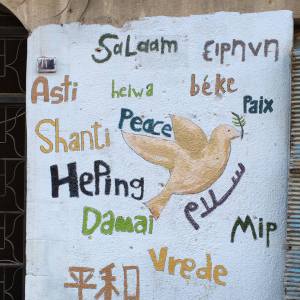 Salaam
ειρηνη
Asti
heiwa
béke
Paix
Shanti
Peace
Heping
سلام
Damai
Мир
Vrede
平和